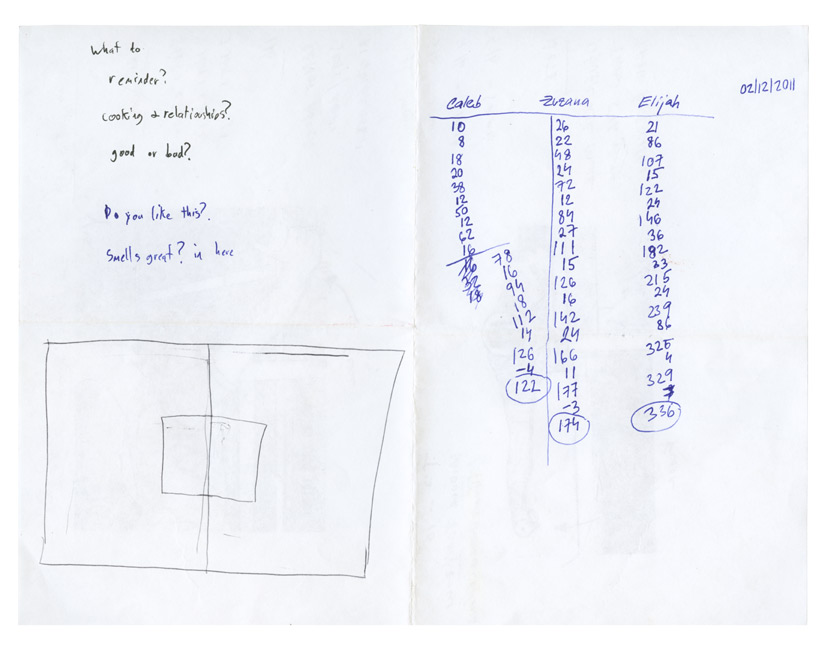 What to
reminder?
cooking & relationships?
good or bad?
Do you like this?
Smells great? in here
02/12/2011
Caleb
10
8
18
20
38
12
50
12
62
16
78
16
94
18
112
14
126
-4
122
Zuzana
26
22
48
24
72
12
84
27
111
15
126
16
142
24
166
11
177
-3
174
Elijah
21
86
107
15
122
24
146
36
182
33
215
24
239
86
325
4
329
7
336